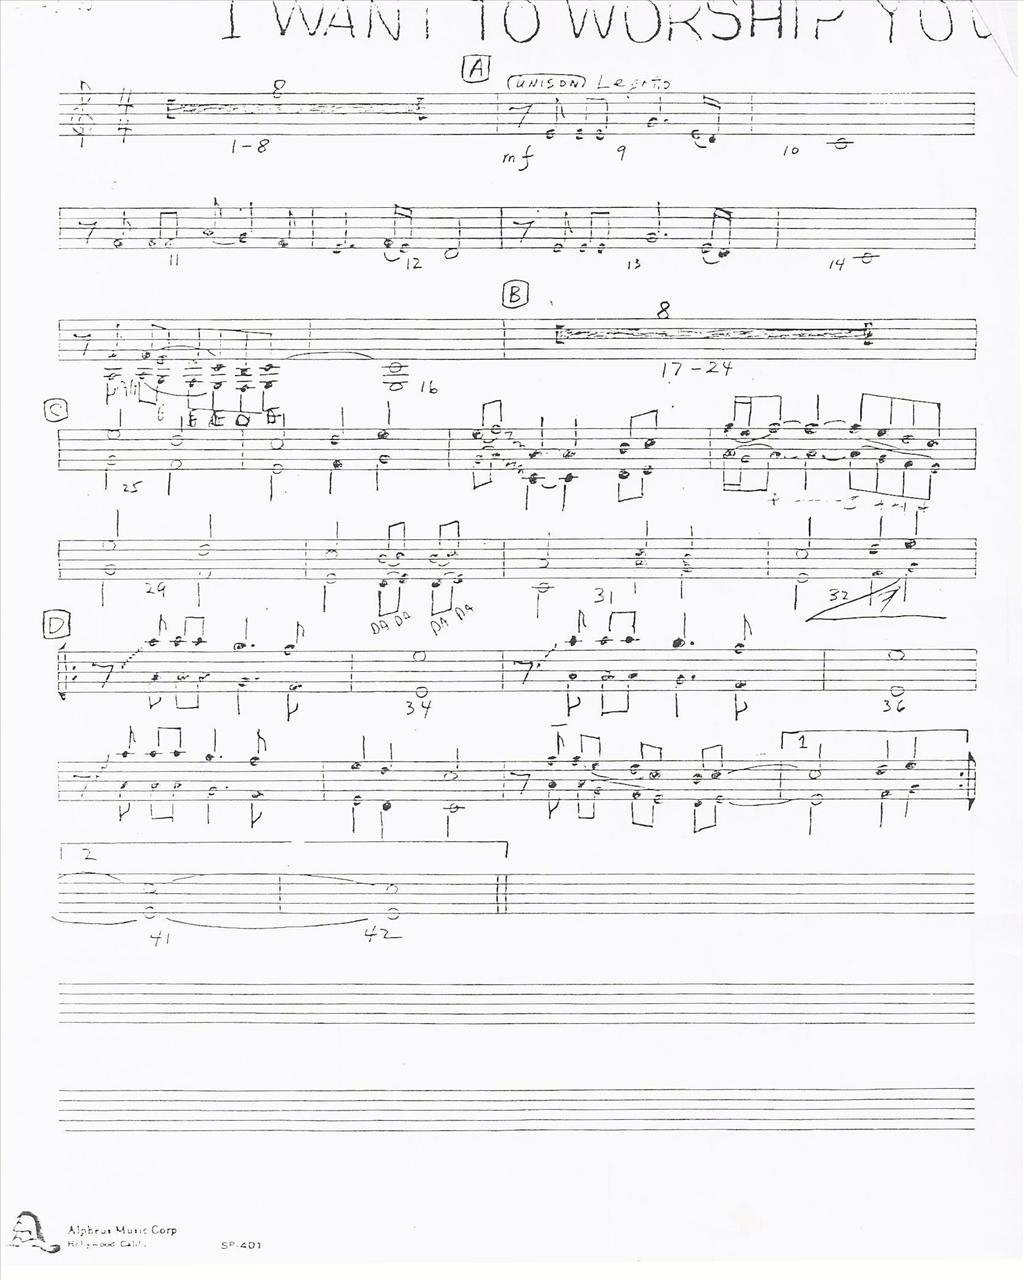 I WANT TO WORSHIP YOU
A UNISON Legato
8
1-8 mf 9 10
11 12 13 14
B
8
16 17-24
E E D E
C
25
29 31 32
DA DA DA DA
D
34 36
1
2
41 42
Alpheus Music Corp
Hollywood Calif.
SP-401